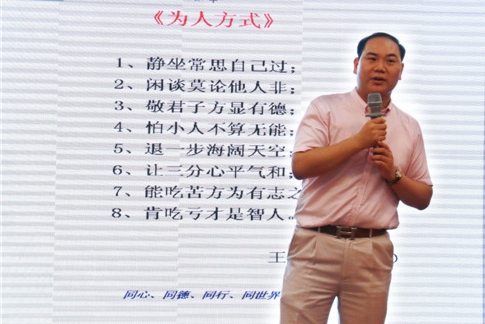 《为人方式》
1、静坐常思自己过;
2、闲谈莫论他人非;
3、敬君子方显有德;
4、怕小人不算无能;
5、退一步海阔天空;
6、让三分心平气和;
7、能吃苦方为有志之
8、肯吃亏才是智人
王
同心、同德、同行、同世界